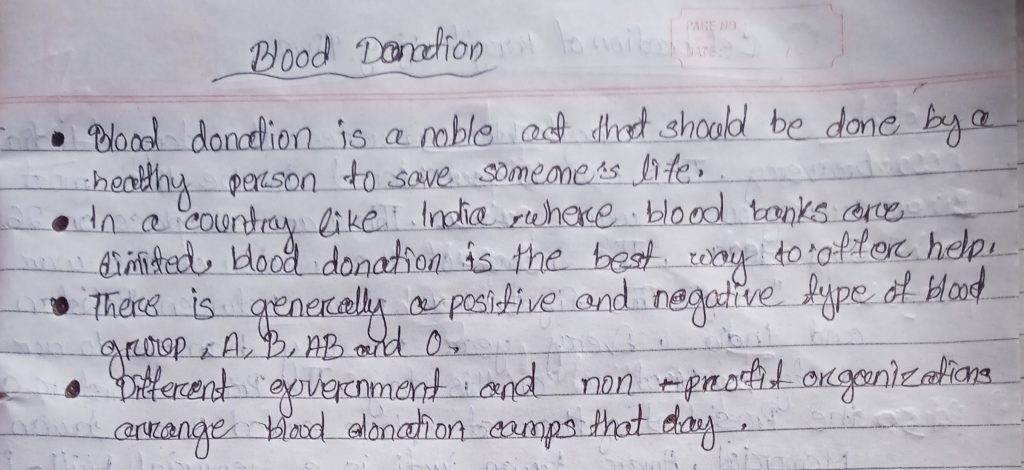 PAGE NO
DATE
Blood Donation
• Blood donation is a noble act that should be done by a
healthy person to save someone's life.
• In a country like India where blood banks are
limited, blood donation is the best way to offer help.
• There is generally a positive and negative type of blood
group, A, B, AB and O.
• Different government and non-profit organizations
arrange blood donation camps that day.